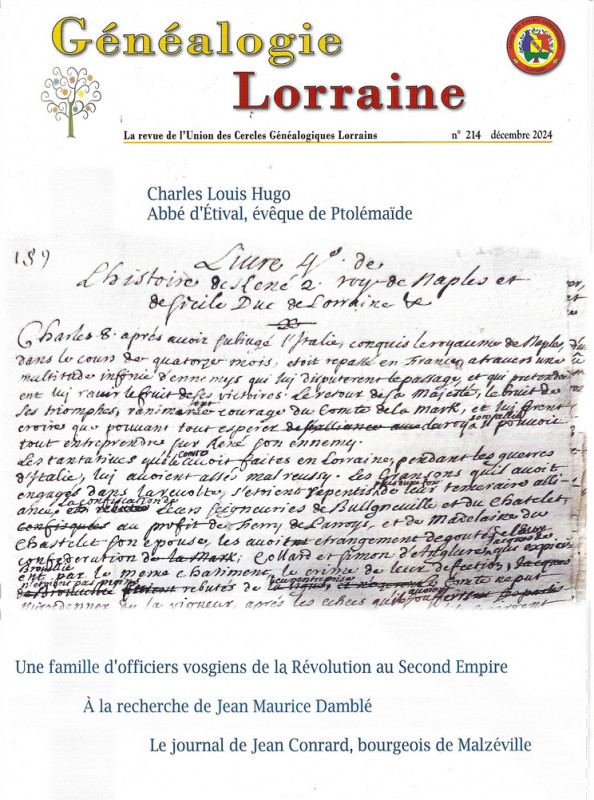 Généalogie
Lorraine
La revue de l'Union des Cercles Généalogiques Lorrains n° 214 décembre 2024
Charles Louis Hugo
Abbé d'Étival, évêque de Ptolémaïde
189
Livre 4e de
L'histoire de René 2 roy de Naples et
de Sicile Duc de Lorraine &
Charles 8. après avoir subiugé l'Italie, conquis le royaume de Naples
dans le cours de quatorze mois, etoit repassé en France, a travers une
multitude infinie d'ennemys qui luy disputerent le passage, et qui pretend
ent luy ravir le fruit de ses victoires. Le retour de sa Majesté, le bruit de
ses triomphes, ranima le courage du Comte de la Mark, et luy firent
croire que pouvant tout esperer du roy il pouvoit
tout entreprendre sur René son ennemy.
Les tantatives que le Comte avoit faites en Lorraine, pendant les guerres
d'Italie, luy avoient assés mal reussy. Les qu'il avoit
engagés dans la revolte, s'etoient repentis de leur temeraire alli-
ance, la confiscation de Leurs seigneuries de Bullgneville et du Chatelet
confisquées au profit de Thierry de Lanoys, et de Madelaine du
Chastelet son epouse, les avoit etrangement degoutés
confederation de la Mark; Collard et Simon d'Anglure, qui
ent par le meme chatiment le crime de leur defection,
rebutés de le Comte ne put
de la vigueur, après les echecs qu'il
Une famille d'officiers vosgiens de la Révolution au Second Empire
À la recherche de Jean Maurice Damblé
Le journal de Jean Conrard, bourgeois de Malzéville